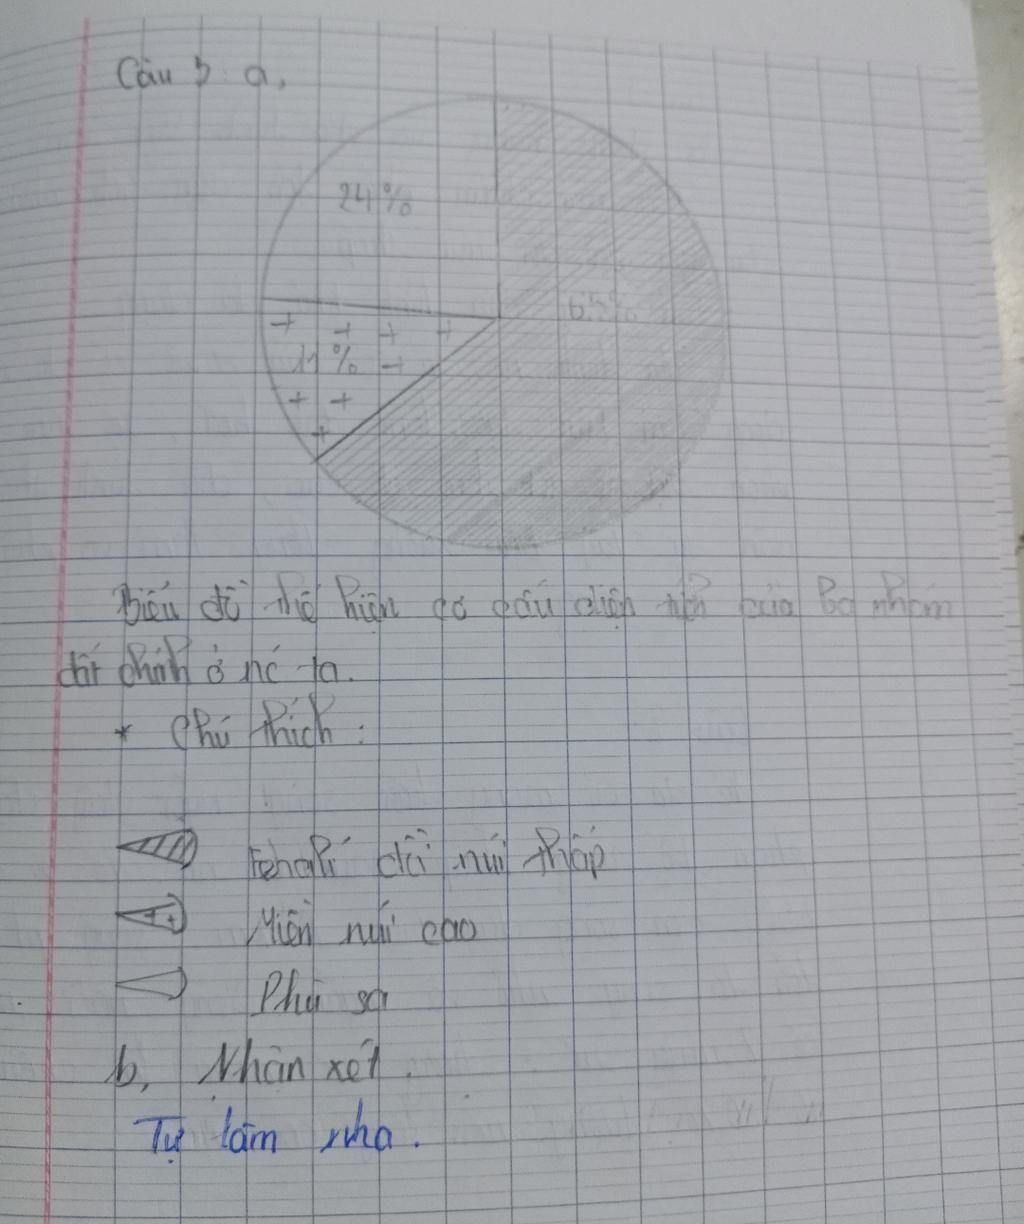 Câu 3 a,
24%
65%
11%
Biểu đồ thể hiện cơ cấu diện tích của ba nhóm
đất chính ở nc ta.
* Chú thích:
Feralit đồi núi thấp
Miền núi cao
Phù sa
b, Nhận xét.
Tự làm nha.